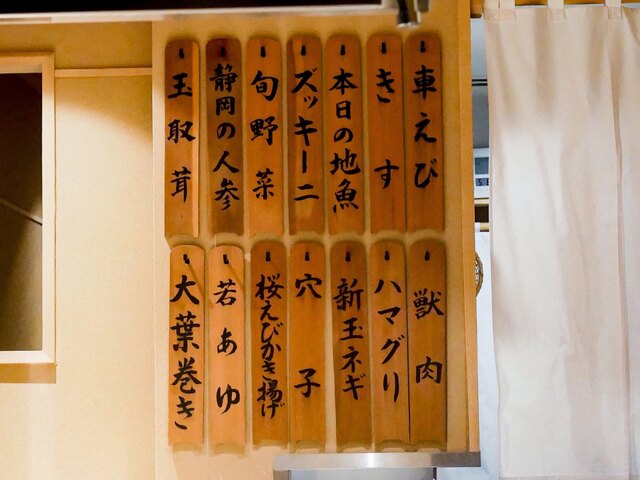 車えび
きす
本日の地魚
ズッキーニ
旬野菜
静岡の人参
玉取茸
獣肉
ハマグリ
新玉ネギ
穴子
桜えびかき揚げ
若あゆ
大葉巻き